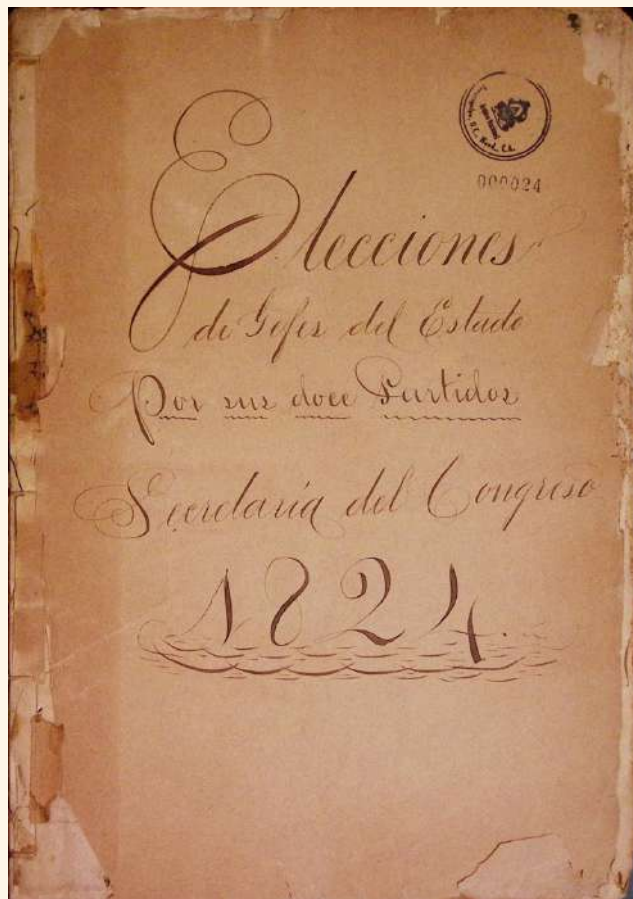 000024
Elecciones
de Gefes del Estado
Por sus doce Partidos
Secretaría del Congreso
1824.